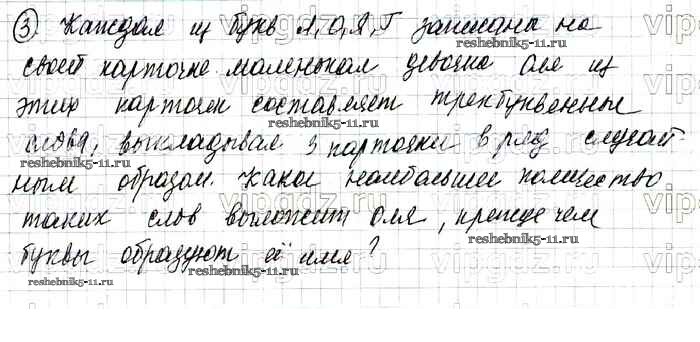 ③ Каждая из букв Л, О, Я, Г записаны на
своей карточке. маленькая девочка Оля из
этих карточек составляет трехбуквенные
слова, выкладывая 3 карточки в ряд случай-
ным образом. Какое наибольшее количество
таких слов выложит Оля, прежде чем
буквы образуют её имя?
reshebnik5-11.ru
reshebnik5-11.ru
reshebnik5-11.ru
reshebnik5-11.ru
reshebnik5-11.ru
reshebnik5-11.ru
vipgdz.ru
vipgdz.ru
vipgdz.ru